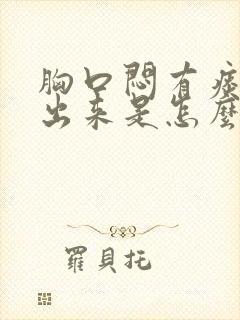 胸口悶有痰
出來是怎麼
羅貝托